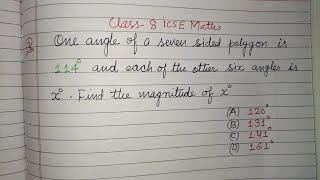 Class-8 ICSE Maths
Q One angle of a seven sided polygon is
114° and each of the other six angles is
x°. Find the magnitude of x°
(A) 120°
(B) 131°
(C) 141°
(D) 161°